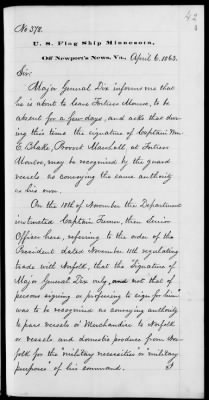 42
No 378.
U. S. Flag Ship Minnesota,
Off Newport's News, Va., April 6, 1863.
Sir:
Major General Dix informs me that
he is about to leave Fortress Monroe, to be
absent for a few days, and asks that du-
ring this time the signature of Captain Wm.
E. Blake, Provost Marshall, at Fortress
Monroe, may be recognized by the guard
vessels as conveying the same authority
as his own.
On the 18th of November the Department
instructed Captain Turner, then Senior
Officer here, referring to the order of the
President dated November 11th regulating
trade with Norfolk, that the "signature of
Major General Dix only, and not that of
persons signing or professing to sign for him"
was to be recognized as conveying authority
to pass vessels or Merchandise to Norfolk
or vessels and domestic produce from Nor-
folk for the "military necessities" or "military
purposes" of his command.